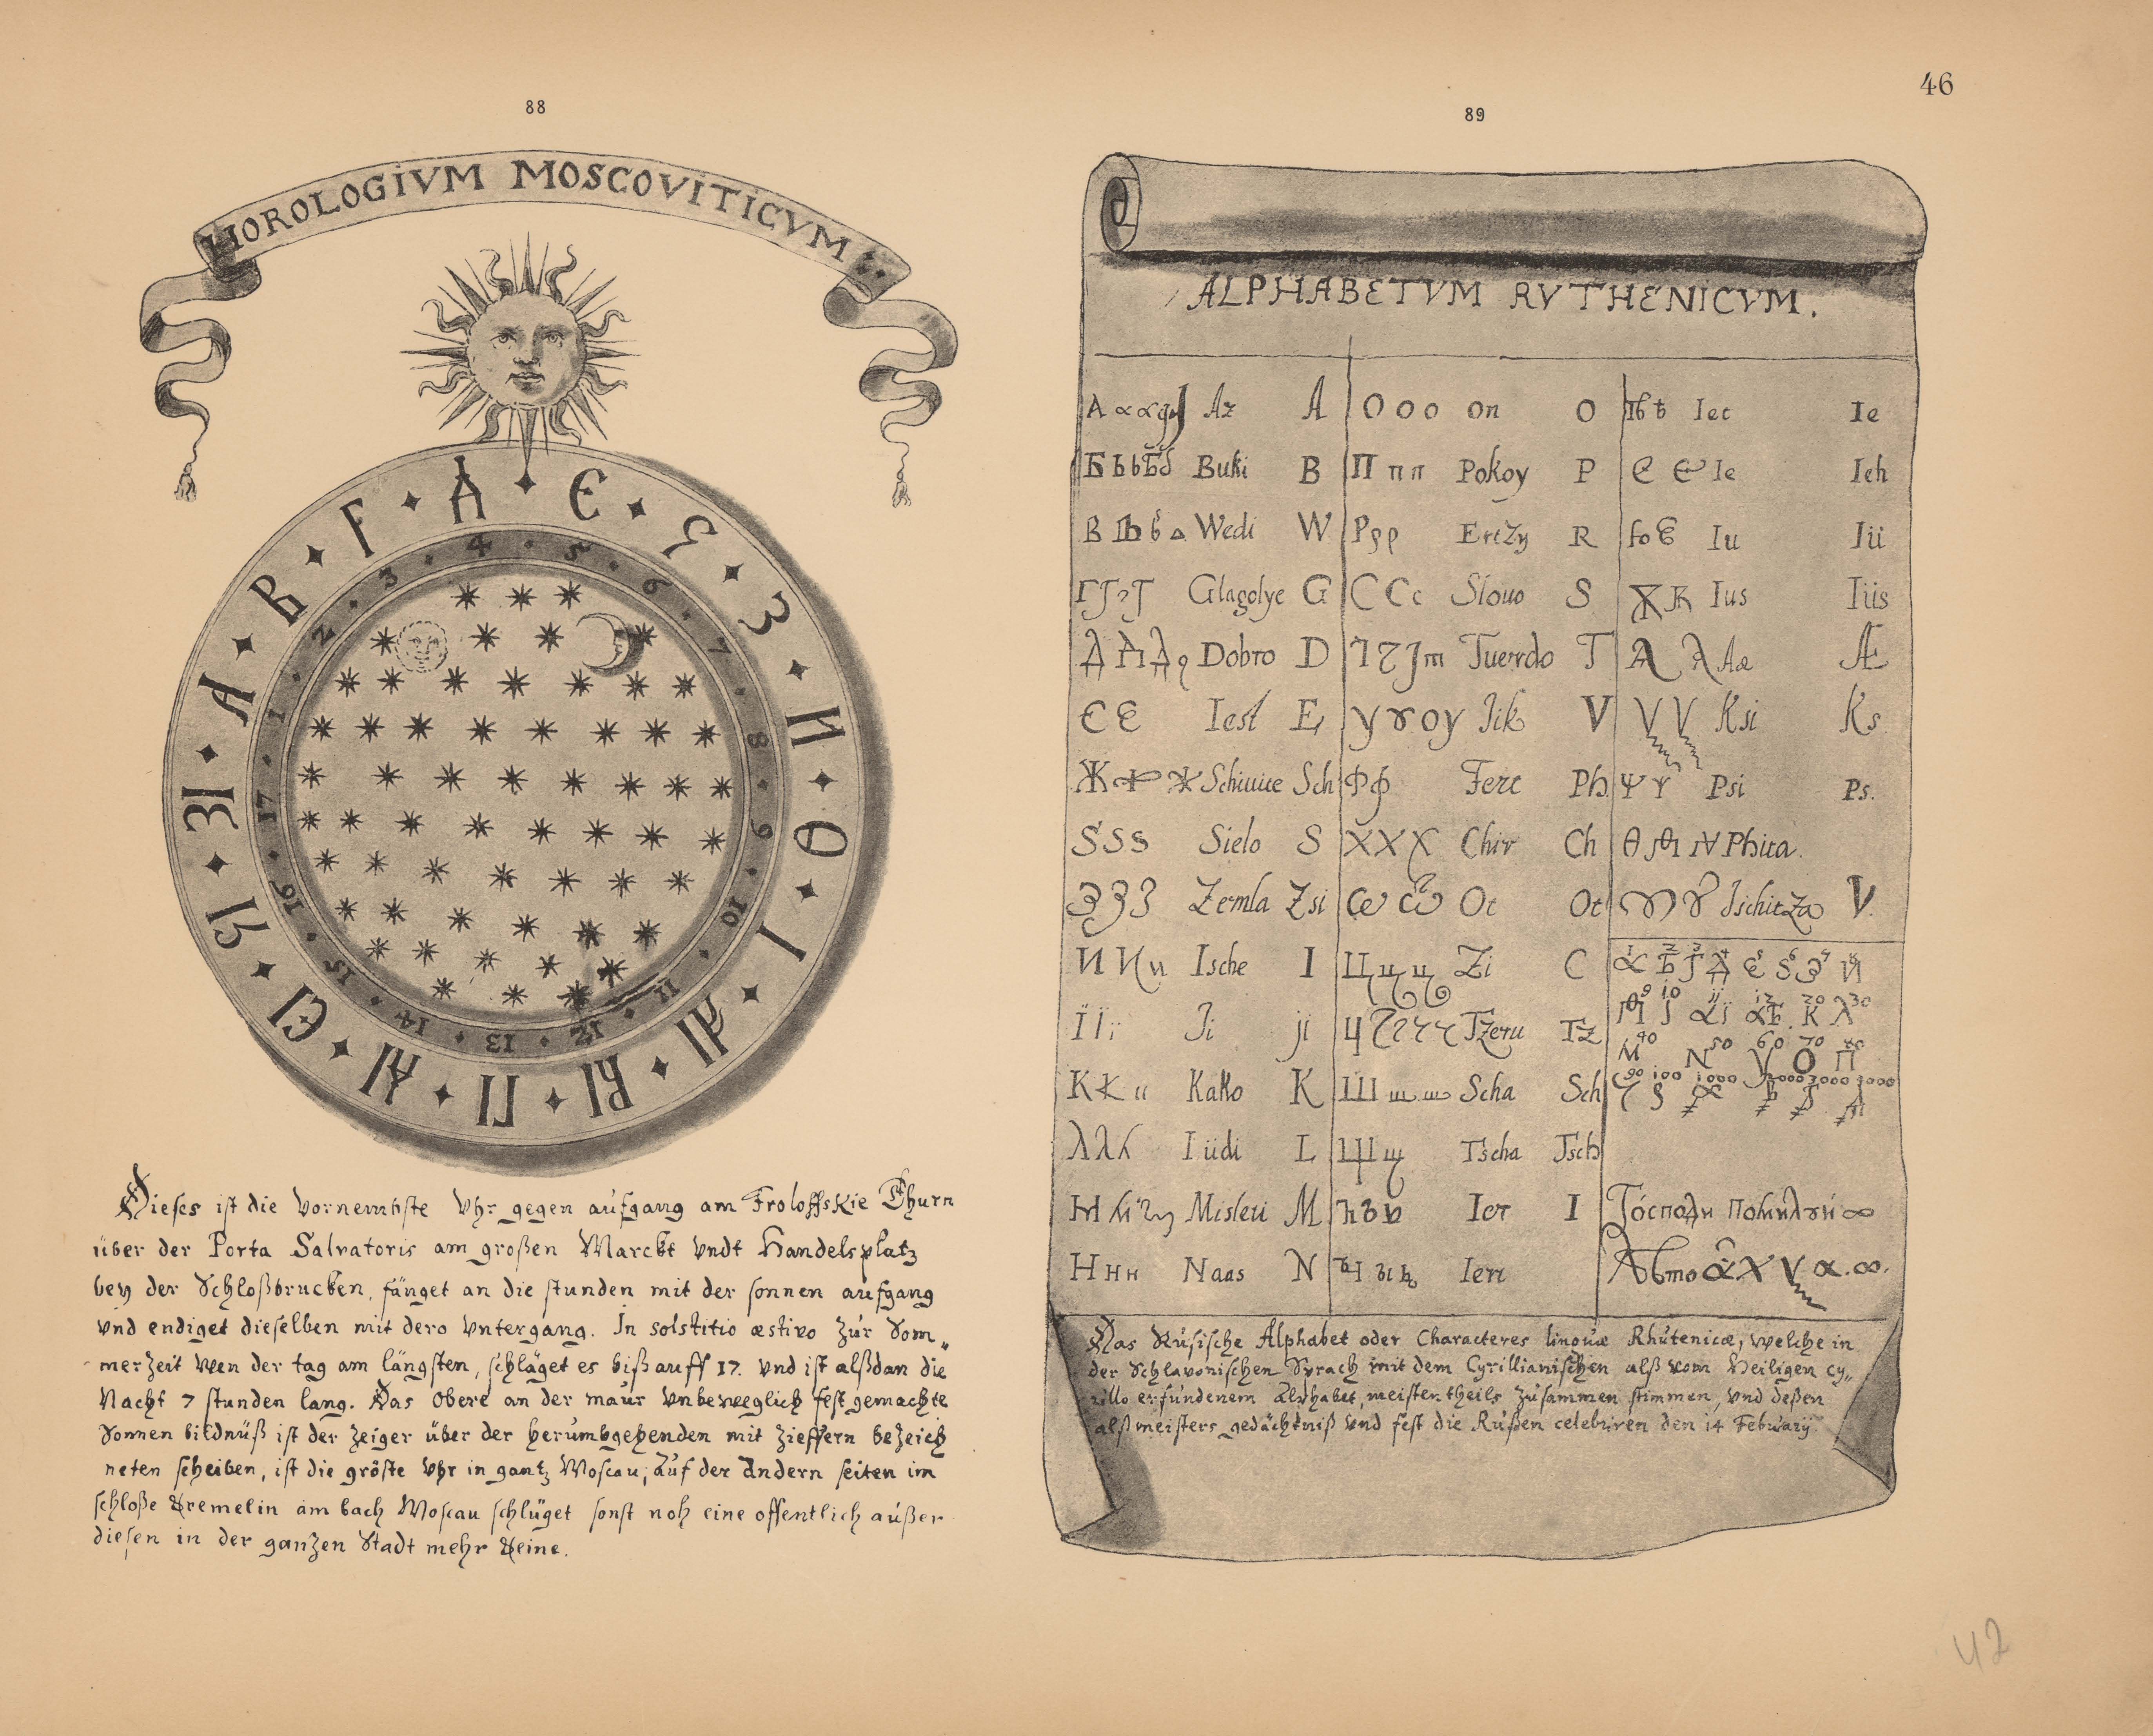 46
88
HOROLOGIVM MOSCOVITICVM
А В Г Д Є Ѕ З И Ѳ І АІ ВІ ГІ ДІ ЄІ ЅІ ЗІ
1 2 3 4 5 6 7 8 9 10 11 12 13 14 15 16 17
Dieses ist die vornembste Vhr gegen aufgang am Froloffskie Thurn
über der Porta Salvatoris am großen Marckt vndt Handelsplatz
bey der Schloßbrucken, fänget an die stunden mit der sonnen aufgang
vnd endiget dieselben mit dero vntergang. In solstitio æstivo zur Som„
merzeit wen der tag am längsten, schläget es biß auff 17. vnd ist alßdan die
Nacht 7 stunden lang. Das obere an der maur vnbeweglich fest gemachte
Sonnen bildnüß ist der Zeiger über der herumbgehenden mit Zieffern bezeich
neten scheiben, ist die gröste Vhr in gantz Moscau; Auf der andern seiten im
schloße Kremelin am bach Moscau schlüget sonst noh eine offentlich außer
diesen in der ganzen Stadt mehr Keine.
89
ALPHABETVM RVTHENICVM.
Az A О о о on O Iec Ie
Buki B П п п Pokoy P Є Ie Ieh
Wedi W Р р р Ertzy R Iu Iü
Glagolye G С С с Slouo S Ius Iüs
Dobro D Tuerdo T Aæ Æ
Є Є Iest E у ɤ оу Jik V Ksi Ks
Ж Schiuue Sch Ф ф Ferc Ph Ѱ Psi Ps.
S S s Sielo S Х Х Х Chir Ch Phita.
З З З Zemla Zsi Ot Ot Ischitza V.
И И и Ische I Ц ц ц Zi C
Ї Ї ї Ji ji Tzeru Tz
К К Kako K Ш ш ш Scha Sch
λ λ Lüdi L Щ щ Tscha Tsch
Misleti M Ier I Господи помилуй
Н н н Naas N Ieri
1 2 3 4 5 6 7 8
9 10 11 12 20 30
40 50 60 70 80
90 100 1000 2000 3000 4000
Das Rusische Alphabet oder Characteres linguæ Rhutenicæ, welche in
der Schlavonischen Sprach mit dem Cyrillianischen alß vom Heiligen Cy„
rillo erfundenem Alphabet, meistentheils zusammen stimmen, vnd deßen
alß meisters gedächtniß vnd fest die Rußen celebriren den 14 Februarij
42